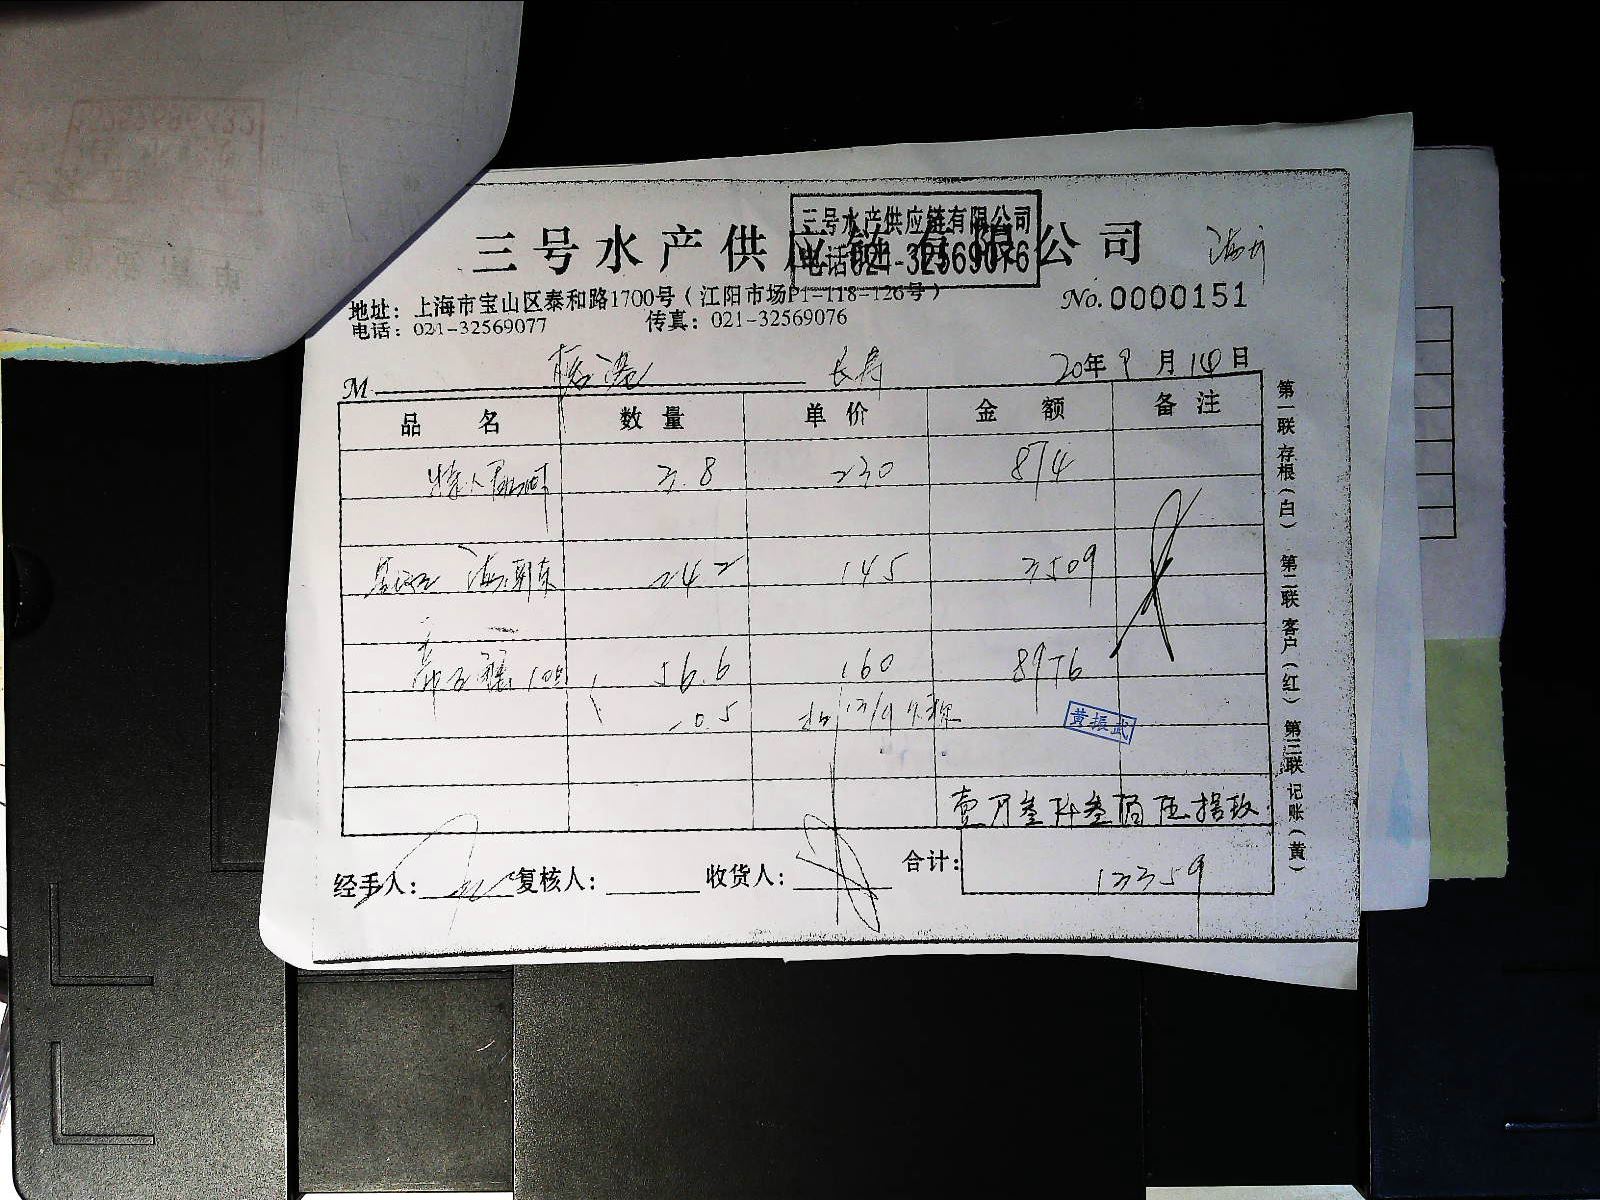 三号水产供应链有限公司
电话021-32569076
三号水产供应链有限公司
地址：上海市宝山区泰和路1700号（江阳市场P1-118-126号）
No.0000151
电话：021-32569077 传真：021-32569076
M 长寿 20年9月14日
品名 数量 单价 金额 备注
3.8 230 874
24.2 145 3509
56.6 160 8976
-0.5
黄振武
壹万叁仟叁佰伍拾玖
经手人： 复核人： 收货人： 合计： 13359
第一联 存根（白） 第二联 客户（红） 第三联 记账（黄）